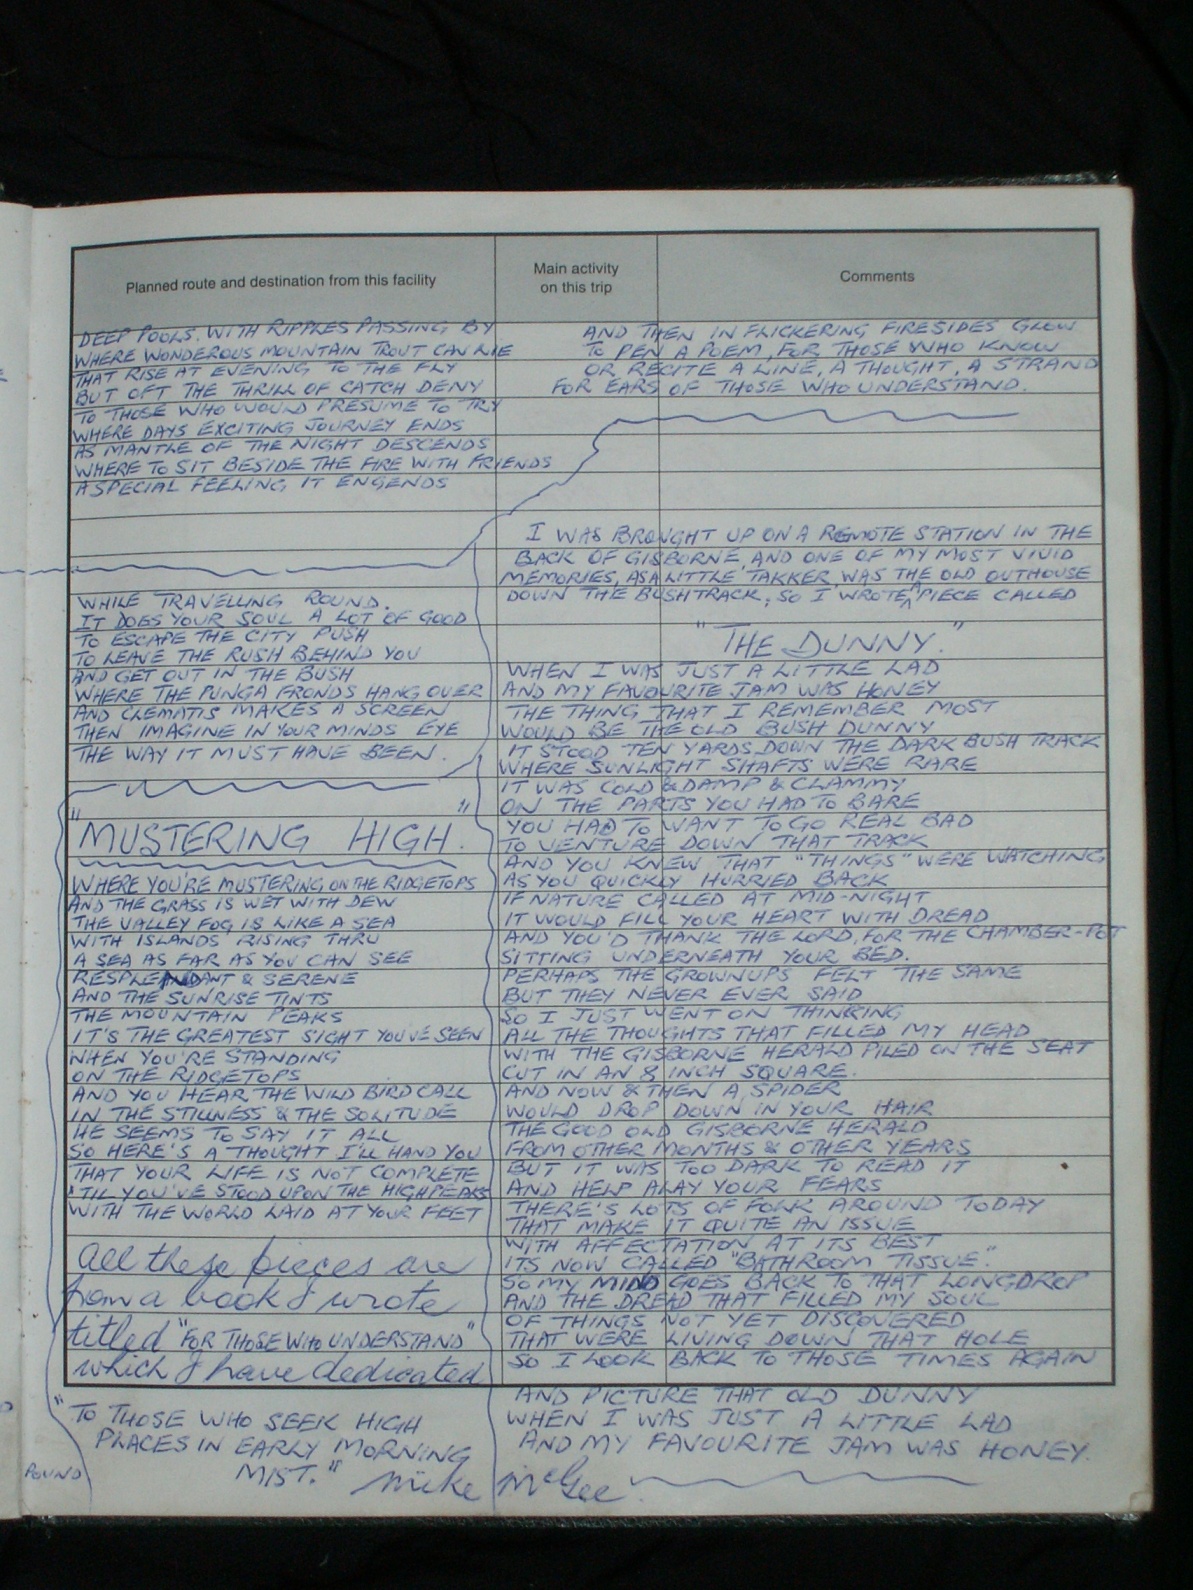 Planned route and destination from this facility
Main activity
on this trip
Comments
DEEP POOLS. WITH RIPPLES PASSING BY
WHERE WONDEROUS MOUNTAIN TROUT CAN LIE
THAT RISE AT EVENING TO THE FLY
BUT OFT THE THRILL OF CATCH DENY
TO THOSE WHO WOULD PRESUME TO TRY
WHERE DAYS EXCITING JOURNEY ENDS
AS MANTLE OF THE NIGHT DESCENDS
WHERE TO SIT BESIDE THE FIRE WITH FRIENDS
A SPECIAL FEELING IT ENGENDS
AND THEN IN FLICKERING FIRESIDES GLOW
TO PEN A POEM, FOR THOSE WHO KNOW
OR RECITE A LINE, A THOUGHT, A STRAND
FOR EARS OF THOSE WHO UNDERSTAND.
WHILE TRAVELLING ROUND.
IT DOES YOUR SOUL A LOT OF GOOD
TO ESCAPE THE CITY PUSH
TO LEAVE THE RUSH BEHIND YOU
AND GET OUT IN THE BUSH
WHERE THE PUNGA FRONDS HANG OVER
AND CLEMATIS MAKES A SCREEN
THEN IMAGINE IN YOUR MINDS EYE
THE WAY IT MUST HAVE BEEN.
"MUSTERING HIGH."
WHERE YOU'RE MUSTERING ON THE RIDGETOPS
AND THE GRASS IS WET WITH DEW
THE VALLEY FOG IS LIKE A SEA
WITH ISLANDS RISING THRU
A SEA AS FAR AS YOU CAN SEE
RESPLENDANT & SERENE
AND THE SUNRISE TINTS
THE MOUNTAIN PEAKS
IT'S THE GREATEST SIGHT YOU'VE SEEN
WHEN YOU'RE STANDING
ON THE RIDGETOPS
AND YOU HEAR THE WILD BIRD CALL
IN THE STILLNESS & THE SOLITUDE
HE SEEMS TO SAY IT ALL
SO HERE'S A THOUGHT I'LL HAND YOU
THAT YOUR LIFE IS NOT COMPLETE
'TIL YOU'VE STOOD UPON THE HIGH PEAKS
WITH THE WORLD LAID AT YOUR FEET
All these pieces are
from a book I wrote
titled "FOR THOSE WHO UNDERSTAND"
which I have dedicated
"TO THOSE WHO SEEK HIGH
PLACES IN EARLY MORNING
MIST." Mike McGee
I WAS BROUGHT UP ON A REMOTE STATION IN THE
BACK OF GISBORNE AND ONE OF MY MOST VIVID
MEMORIES, AS A LITTLE TAKKER, WAS THE OLD OUTHOUSE
DOWN THE BUSHTRACK, SO I WROTE ^ PIECE CALLED
"THE DUNNY."
WHEN I WAS JUST A LITTLE LAD
AND MY FAVOURITE JAM WAS HONEY
THE THING THAT I REMEMBER MOST
WOULD BE THE OLD BUSH DUNNY
IT STOOD TEN YARDS DOWN THE DARK BUSH TRACK
WHERE SUNLIGHT SHAFTS WERE RARE
IT WAS COLD & DAMP & CLAMMY
ON THE PARTS YOU HAD TO BARE
YOU HAD TO WANT TO GO REAL BAD
TO VENTURE DOWN THAT TRACK
AND YOU KNEW THAT "THINGS" WERE WATCHING
AS YOU QUICKLY HURRIED BACK
IF NATURE CALLED AT MID-NIGHT
IT WOULD FILL YOUR HEART WITH DREAD
AND YOU'D THANK THE LORD, FOR THE CHAMBER-POT
SITTING UNDERNEATH YOUR BED.
PERHAPS THE GROWNUPS FELT THE SAME
BUT THEY NEVER EVER SAID
SO I JUST WENT ON THINKING
ALL THE THOUGHTS THAT FILLED MY HEAD
WITH THE GISBORNE HERALD PILED ON THE SEAT
CUT IN AN 8 INCH SQUARE.
AND NOW & THEN A SPIDER
WOULD DROP DOWN IN YOUR HAIR
THE GOOD OLD GISBORNE HERALD
FROM OTHER MONTHS & OTHER YEARS
BUT IT WAS TOO DARK TO READ IT
AND HELP ALAY YOUR FEARS
THERE'S LOTS OF FOLK AROUND TODAY
THAT MAKE IT QUITE AN ISSUE
WITH AFFECTATION AT ITS BEST
ITS NOW CALLED "BATHROOM TISSUE."
SO MY MIND GOES BACK TO THAT LONGDROP
AND THE DREAD THAT FILLED MY SOUL
OF THINGS NOT YET DISCOVERED
THAT WERE LIVING DOWN THAT HOLE
SO I LOOK BACK TO THOSE TIMES AGAIN
AND PICTURE THAT OLD DUNNY
WHEN I WAS JUST A LITTLE LAD
AND MY FAVOURITE JAM WAS HONEY.